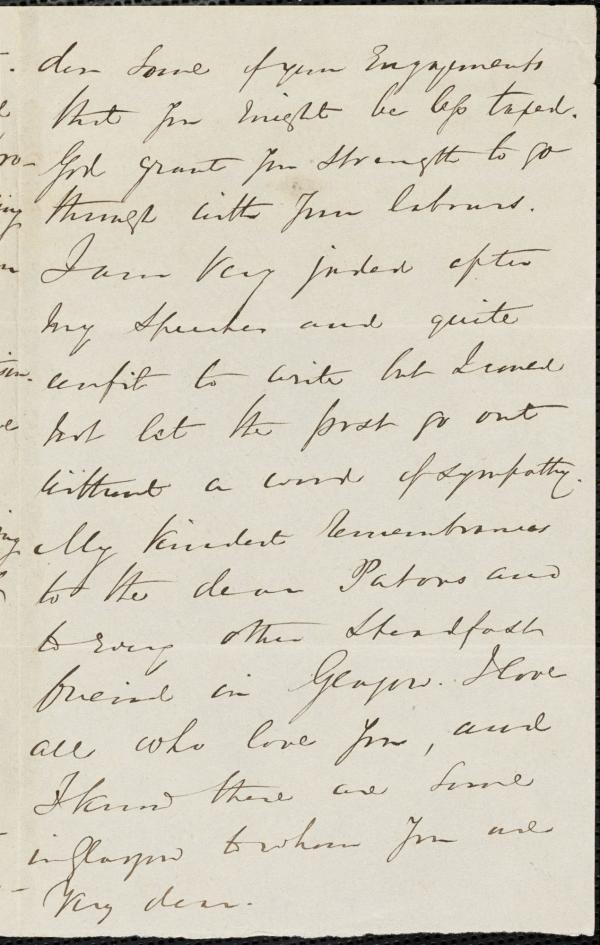 den some of your Engagements
that you might be less taxed.
God grant you strength to go
through with your labours.
I am very jaded after
my speeches and quite
unfit to write but I could
not let the post go out
without a word of sympathy.
My kindest remembrances
to the dear Patons and
to every other steadfast
friend in Glasgow. I love
all who love you, and
I know there are some
in Glasgow to whom you are
very dear.